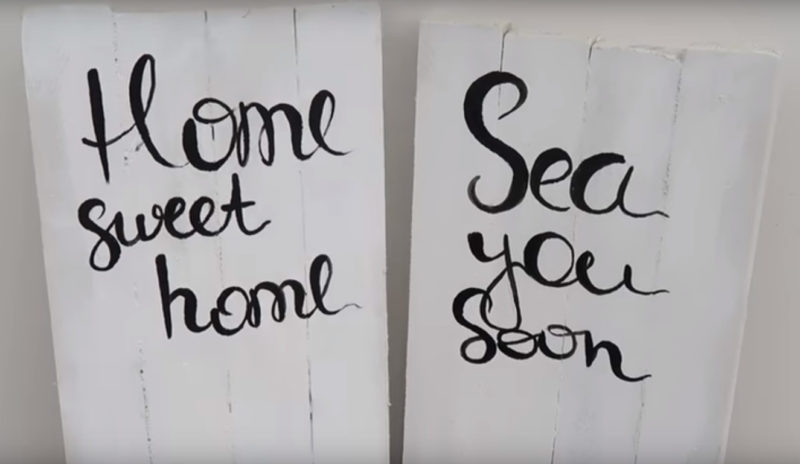 Home
sweet
home
Sea
you
Soon